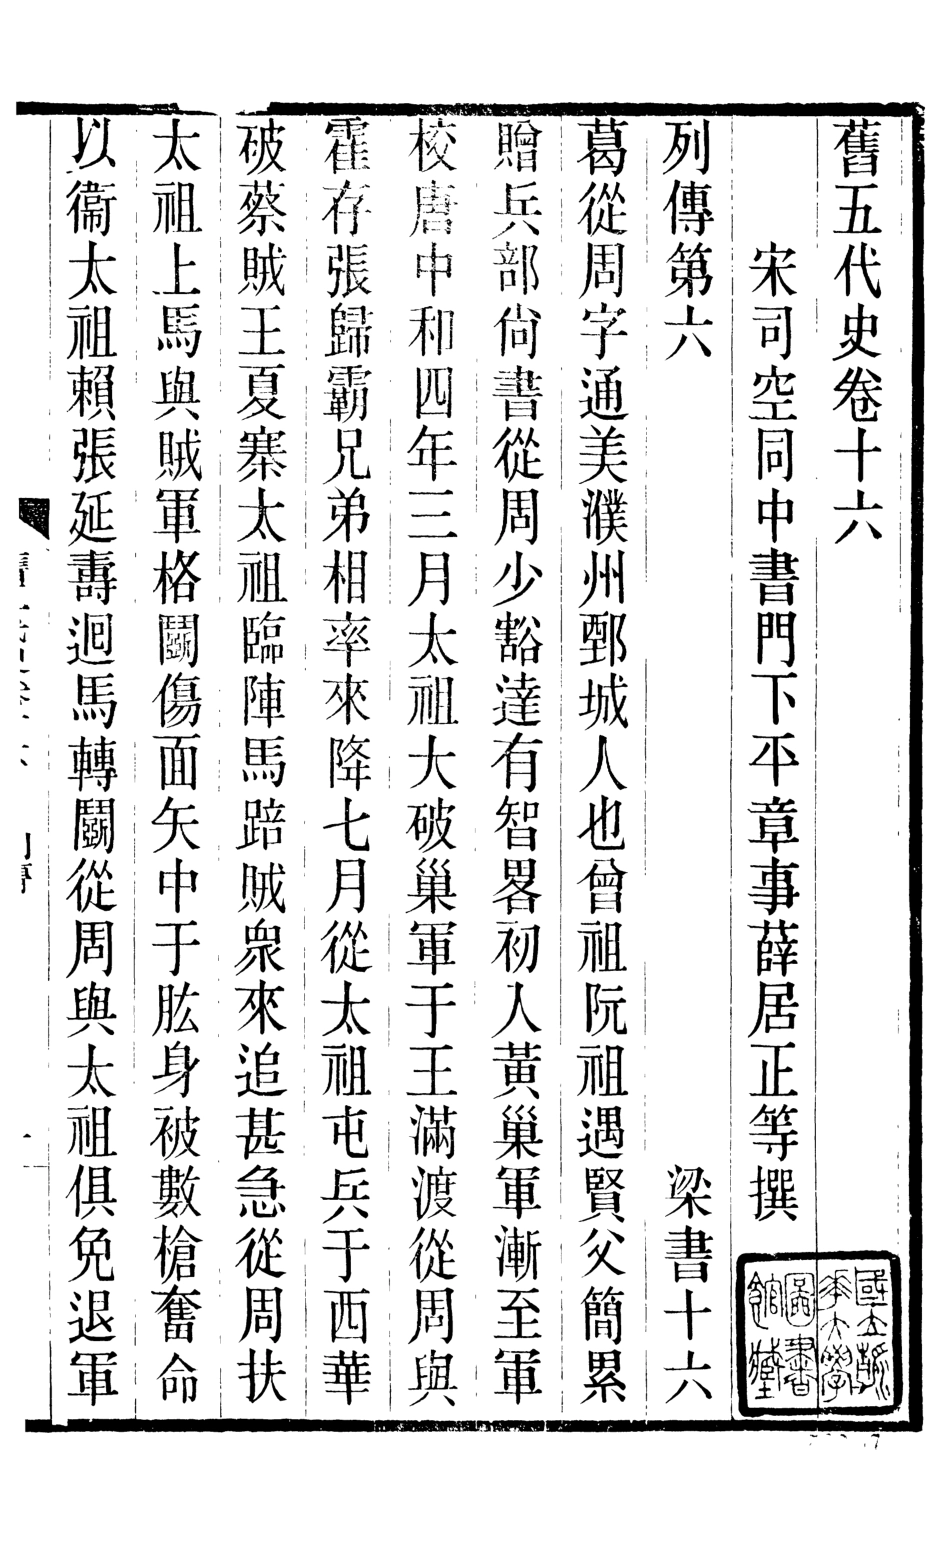 舊五代史卷十六
宋司空同中書門下平章事薛居正等撰
列傳第六 梁書十六
葛從周字通美濮州鄄城人也曾祖阮祖遇賢父簡累
贈兵部尙書從周少豁達有智畧初入黃巢軍漸至軍
校唐中和四年三月太祖大破巢軍于王滿渡從周與
霍存張歸霸兄弟相率來降七月從太祖屯兵于西華
破蔡賊王夏寨太祖臨陣馬踣賊衆來追甚急從周扶
太祖上馬與賊軍格鬭傷面矢中于肱身被數槍奮命
以衞太祖賴張延壽迴馬轉鬭從周與太祖俱免退軍
國立清華大學圖書館藏